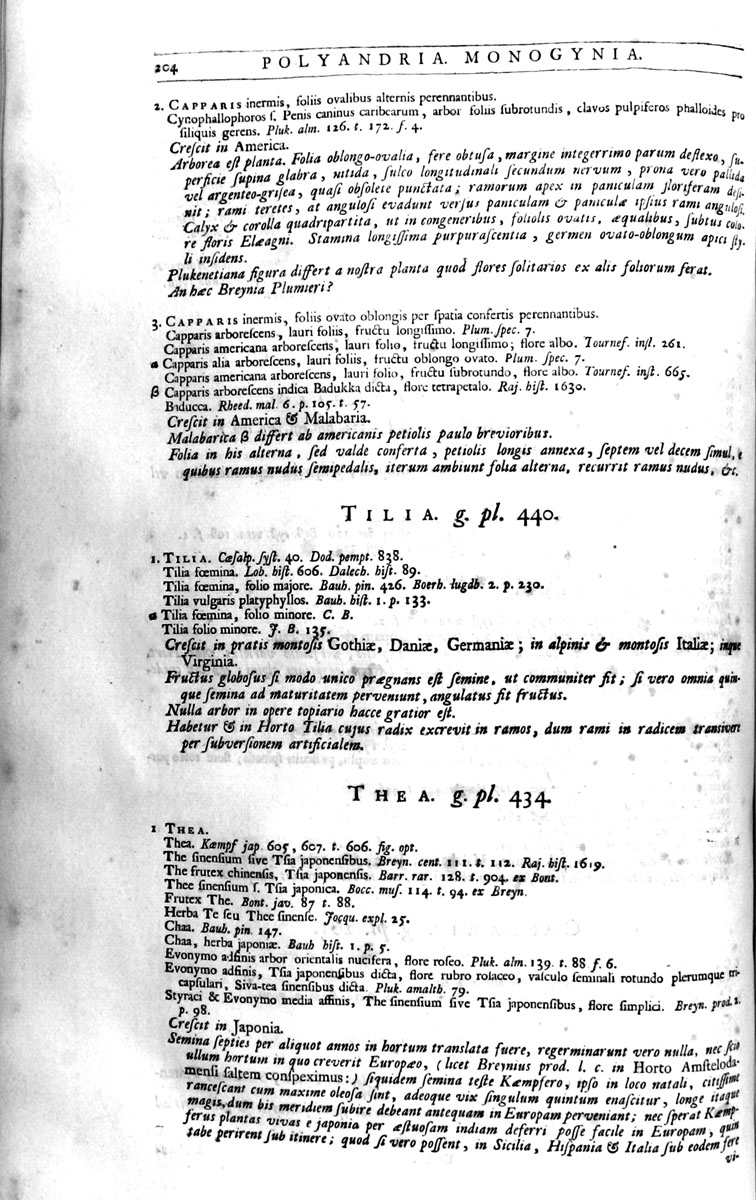 204 POLYANDRIA. MONOGYNIA.
2. CAPPARIS inermis, foliis ovalibus alternis perennantibus.
Cynophallophoros ſ. Penis caninus caribearum, arbor foliis ſubrotundis, clavos pulpiferos phalloides pro
ſiliquis gerens. Pluk. alm. 126. t. 172. f. 4.
Creſcit in America.
Arborea eſt planta. Folia oblongo-ovalia, fere obtuſa, margine integerrimo parum deflexo, ſu-
perficie ſupina glabra, nitida, ſulco longitudinali ſecundum nervum, prona vero pallida
vel argenteo-griſea, quaſi obſolete punctata; ramorum apex in paniculam floriferam deſi-
nit; rami teretes, at anguloſi evadunt verſus paniculam & paniculæ ipſius rami anguloſi.
Calyx & corolla quadripartita, ut in congeneribus, foliolis ovatis, æqualibus, ſubtus colo-
re floris Elæagni. Stamina longiſſima purpuraſcentia, germen ovato-oblongum apici ſty-
li inſidens.
Plukenetiana figura differt a noſtra planta quod flores ſolitarios ex alis foliorum ferat.
An hæc Breynia Plumieri?
3. CAPPARIS inermis, foliis ovato oblongis per ſpatia confertis perennantibus.
Capparis arboreſcens, lauri foliis, fructu longiſſimo. Plum. ſpec. 7.
Capparis americana arboreſcens, lauri folio, fructu longiſſimo; flore albo. Tournef. inſt. 261.
α Capparis alia arboreſcens, lauri foliis, fructu oblongo ovato. Plum. ſpec. 7.
Capparis americana arboreſcens, lauri folio, fructu ſubrotundo, flore albo. Tournef. inſt. 665.
β Capparis arboreſcens indica Badukka dicta, flore tetrapetalo. Raj. hiſt. 1630.
Baducca. Rheed. mal. 6. p. 105. t. 57.
Creſcit in America & Malabaria.
Malabarica β differt ab americanis petiolis paulo brevioribus.
Folia in his alterna, ſed valde conferta, petiolis longis annexa, ſeptem vel decem ſimul, e
quibus ramus nudus ſemipedalis, iterum ambiunt folia alterna, recurrit ramus nudus, &c.
TILIA. g. pl. 440.
1. TILIA. Cæſalp. ſyſt. 40. Dod. pempt. 838.
Tilia fœmina. Lob. hiſt. 606. Dalech. hiſt. 89.
Tilia fœmina, folio majore. Bauh. pin. 426. Boerh. lugdb. 2. p. 230.
Tilia vulgaris platyphyllos. Bauh. hiſt. 1. p. 133.
α Tilia fœmina, folio minore. C. B.
Tilia folio minore. J. B. 135.
Creſcit in pratis montoſis Gothiæ, Daniæ, Germaniæ; in alpinis & montoſis Italiæ; inque
Virginia.
Fructus globoſus ſi modo unico prægnans eſt ſemine, ut communiter fit; ſi vero omnia quin-
que ſemina ad maturitatem perveniunt, angulatus fit fructus.
Nulla arbor in opere topiario hacce gratior eſt.
Habetur & in Horto Tilia cujus radix excrevit in ramos, dum rami in radicem tranſivere
per ſubverſionem artificialem.
THEA. g. pl. 434.
1 THEA.
Thea. Kæmpf jap 605, 607. t. 606. fig. opt.
The ſinenſium ſive Tſia japonenſibus. Breyn. cent. 111. t. 112. Raj. hiſt. 1619.
The frutex chinenſis, Tſia japonenſis. Barr. rar. 128. t. 904. ex Bont.
Thee ſinenſium ſ. Tſia japonica. Bocc. muſ. 114. t. 94. ex Breyn.
Frutex The. Bont. jav. 87 t. 88.
Herba Te ſeu Thee ſinenſe. Jocqu. expl. 25.
Chaa. Bauh. pin. 147.
Chaa, herba japoniæ. Bauh hiſt. 1. p. 5.
Evonymo adfinis arbor orientalis nucifera, flore roſeo. Pluk. alm. 139. t. 88 f. 6.
Evonymo adfinis, Tſia japonenſibus dicta, flore rubro roſaceo, vaſculo ſeminali rotundo plerumque tri-
capſulari, Siva-tea ſinenſibus dicta. Pluk. amalth. 79.
Styraci & Evonymo media affinis, The ſinenſium ſive Tſia japonenſibus, flore ſimplici. Breyn. prod. 2.
p. 98.
Creſcit in Japonia.
Semina ſepties per aliquot annos in hortum translata fuere, regerminarunt vero nulla, nec ſcio
ullum hortum in quo creverit Europæo, (licet Breynius prod. l. c. in Horto Amſteloda-
menſi ſaltem conſpeximus:) ſiquidem ſemina teſte Kæmpfero, ipſo in loco natali, citiſſime
ranceſcant cum maxime oleoſa ſint, adeoque vix ſingulum quintum enaſcitur, longe itaque
magis, dum bis meridiem ſubire debeant antequam in Europam perveniant; nec ſperat Kæmp-
ferus plantas vivas e japonia per æſtuoſam indiam deferri poſſe facile in Europam, quin
tabe perirent ſub itinere; quod ſi vero poſſent, in Sicilia, Hiſpania & Italia ſub eodem fere
vi-